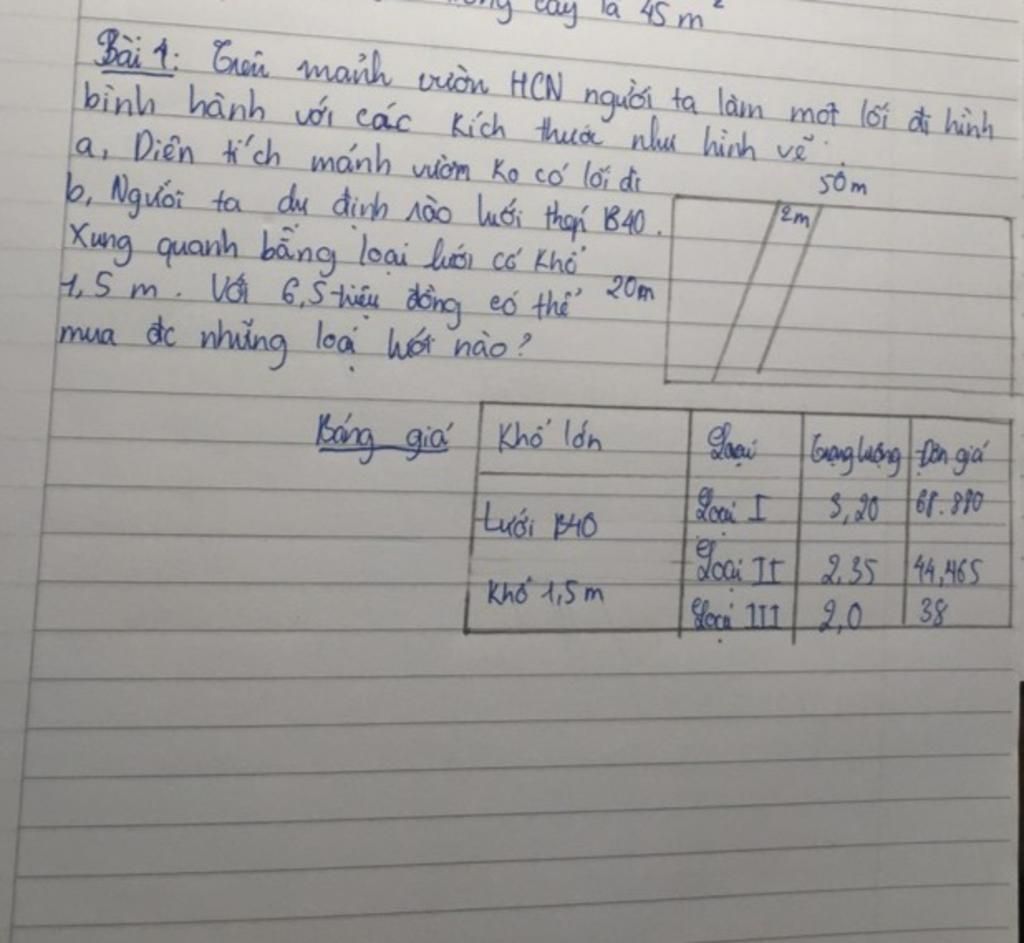 cây là 45 m²
Bài 1: Trên mảnh vườn HCN người ta làm một lối đi hình
bình hành với các kích thước như hình vẽ.
a, Diện tích mảnh vườn ko có lối đi
50m
b, Người ta dự định rào lưới thép B40.
2m
xung quanh bằng loại lưới có khổ
1,5 m. Với 6,5 triệu đồng có thể
20m
mua đc những loại lưới nào?
Bảng giá
Khổ lớn Loại Trọng lượng Đơn giá
Lưới B40 Loại I 3,20
Loại II 2,35 44,465
Khổ 1,5 m Loại III 2,0 38